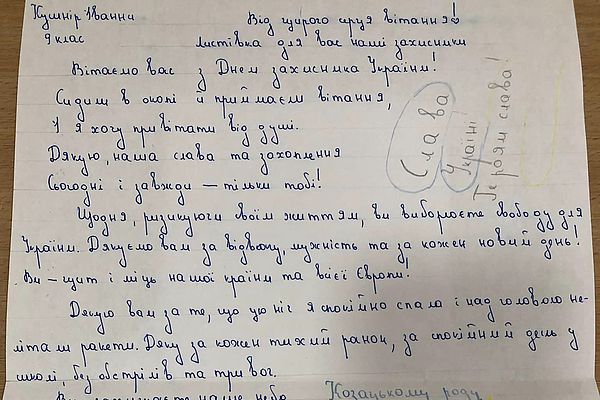 Кушнір Іванни
Від щирого серця вітання!
9 клас
листівка для вас наші захисники
Вітаємо вас з Днем захисника України!
Сидиш в окопі й приймаєш вітання,
І я хочу привітати від душі.
Дякую, наша слава та захоплення
Сьогодні і завжди – тільки тобі!
Слава
Україні
Героям слава!
Щодня, ризикуючи своїм життям, ви виборюєте свободу для
України. Дякуємо вам за відвагу, мужність та за кожен новий день!
Ви – щит і міць нашої країни та всієї Європи!
Дякую вам за те, що цю ніч я спокійно спала і над головою не
літали ракети. Дяку за кожен тихий ранок, за спокійний день у
школі, без обстрілів та тривог.
наше небо
Козацькому роду